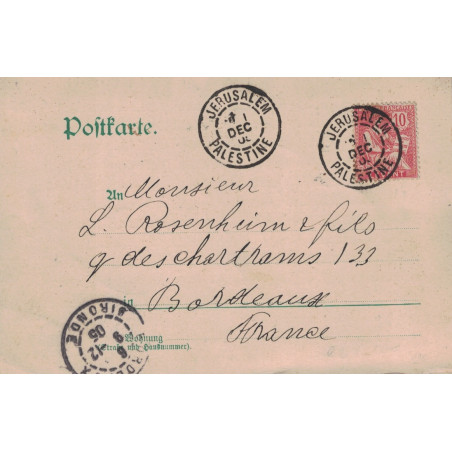 JERUSALEM
1
DEC
PALESTINE
JERUSALEM
DEC
PALESTINE
10
Postkarte.
An Monsieur
L. Rosenheim & fils
q des chartrams 133
in Bordeaux
France
Wohnung
(Straße und Hausnummer).
GIRONDE
9-12
05